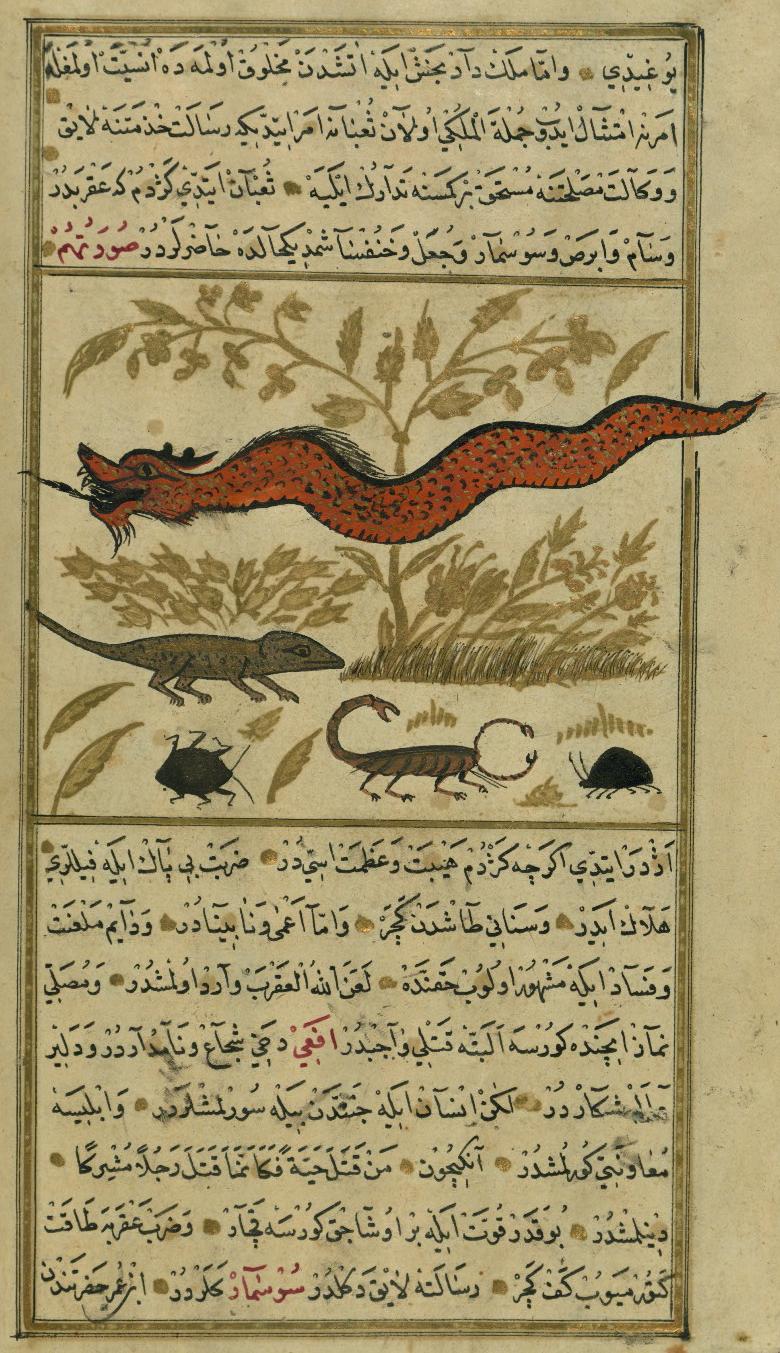 يوغيدي وامّا ملك داد بخش ايله اتشدن مخلوق اولمه ده انسيّت اولمغله
امرنه امتثال ايدوب جملة الملكى اولان ثعبانه امر ايتديكه رسالت خذمتنه لايق
ووكالت مصلحتنه مستحق بر كمسنه تدارك ايليه ثعبان ايتدي كژدم كه عقربدر
وسام وابرص وسوسمار وجعل وخنفسا شمديكيحالده حاضرلردر صورتهم
اژدرها ايتدي اكرچه كژدم هيبت وعظمت اسيدر ضربت بي باك ايله فيللري
هلاك ايدر وسناني طاشدن كچر وامّا اعمى ونابينادر ودايم ملعنت
وفساد ايله مشهور اولوب حقنده لعن الله العقرب وارد اولمشدر ومصلّي
نماز ايچنده كورسه البتّه قتلي واجبدر افعي دخي شجاع ونامداردر ودلير
شكاردر لكن انسان ايله جنّتدن بيله سورلمشلردر وابليسه
معاونتي كورلمشدر آنكيچون من قتل حيّة فكانّما قتل رجلا مشركا
دينلمشدر بوقدر قوّت ايله بر اوشاجق كورسه قچار وضرب عقربه طاقت
كتورميوب كف كچر رسالته لايق دكلدر سوسمار كلردر ابن عمر حضرتندن